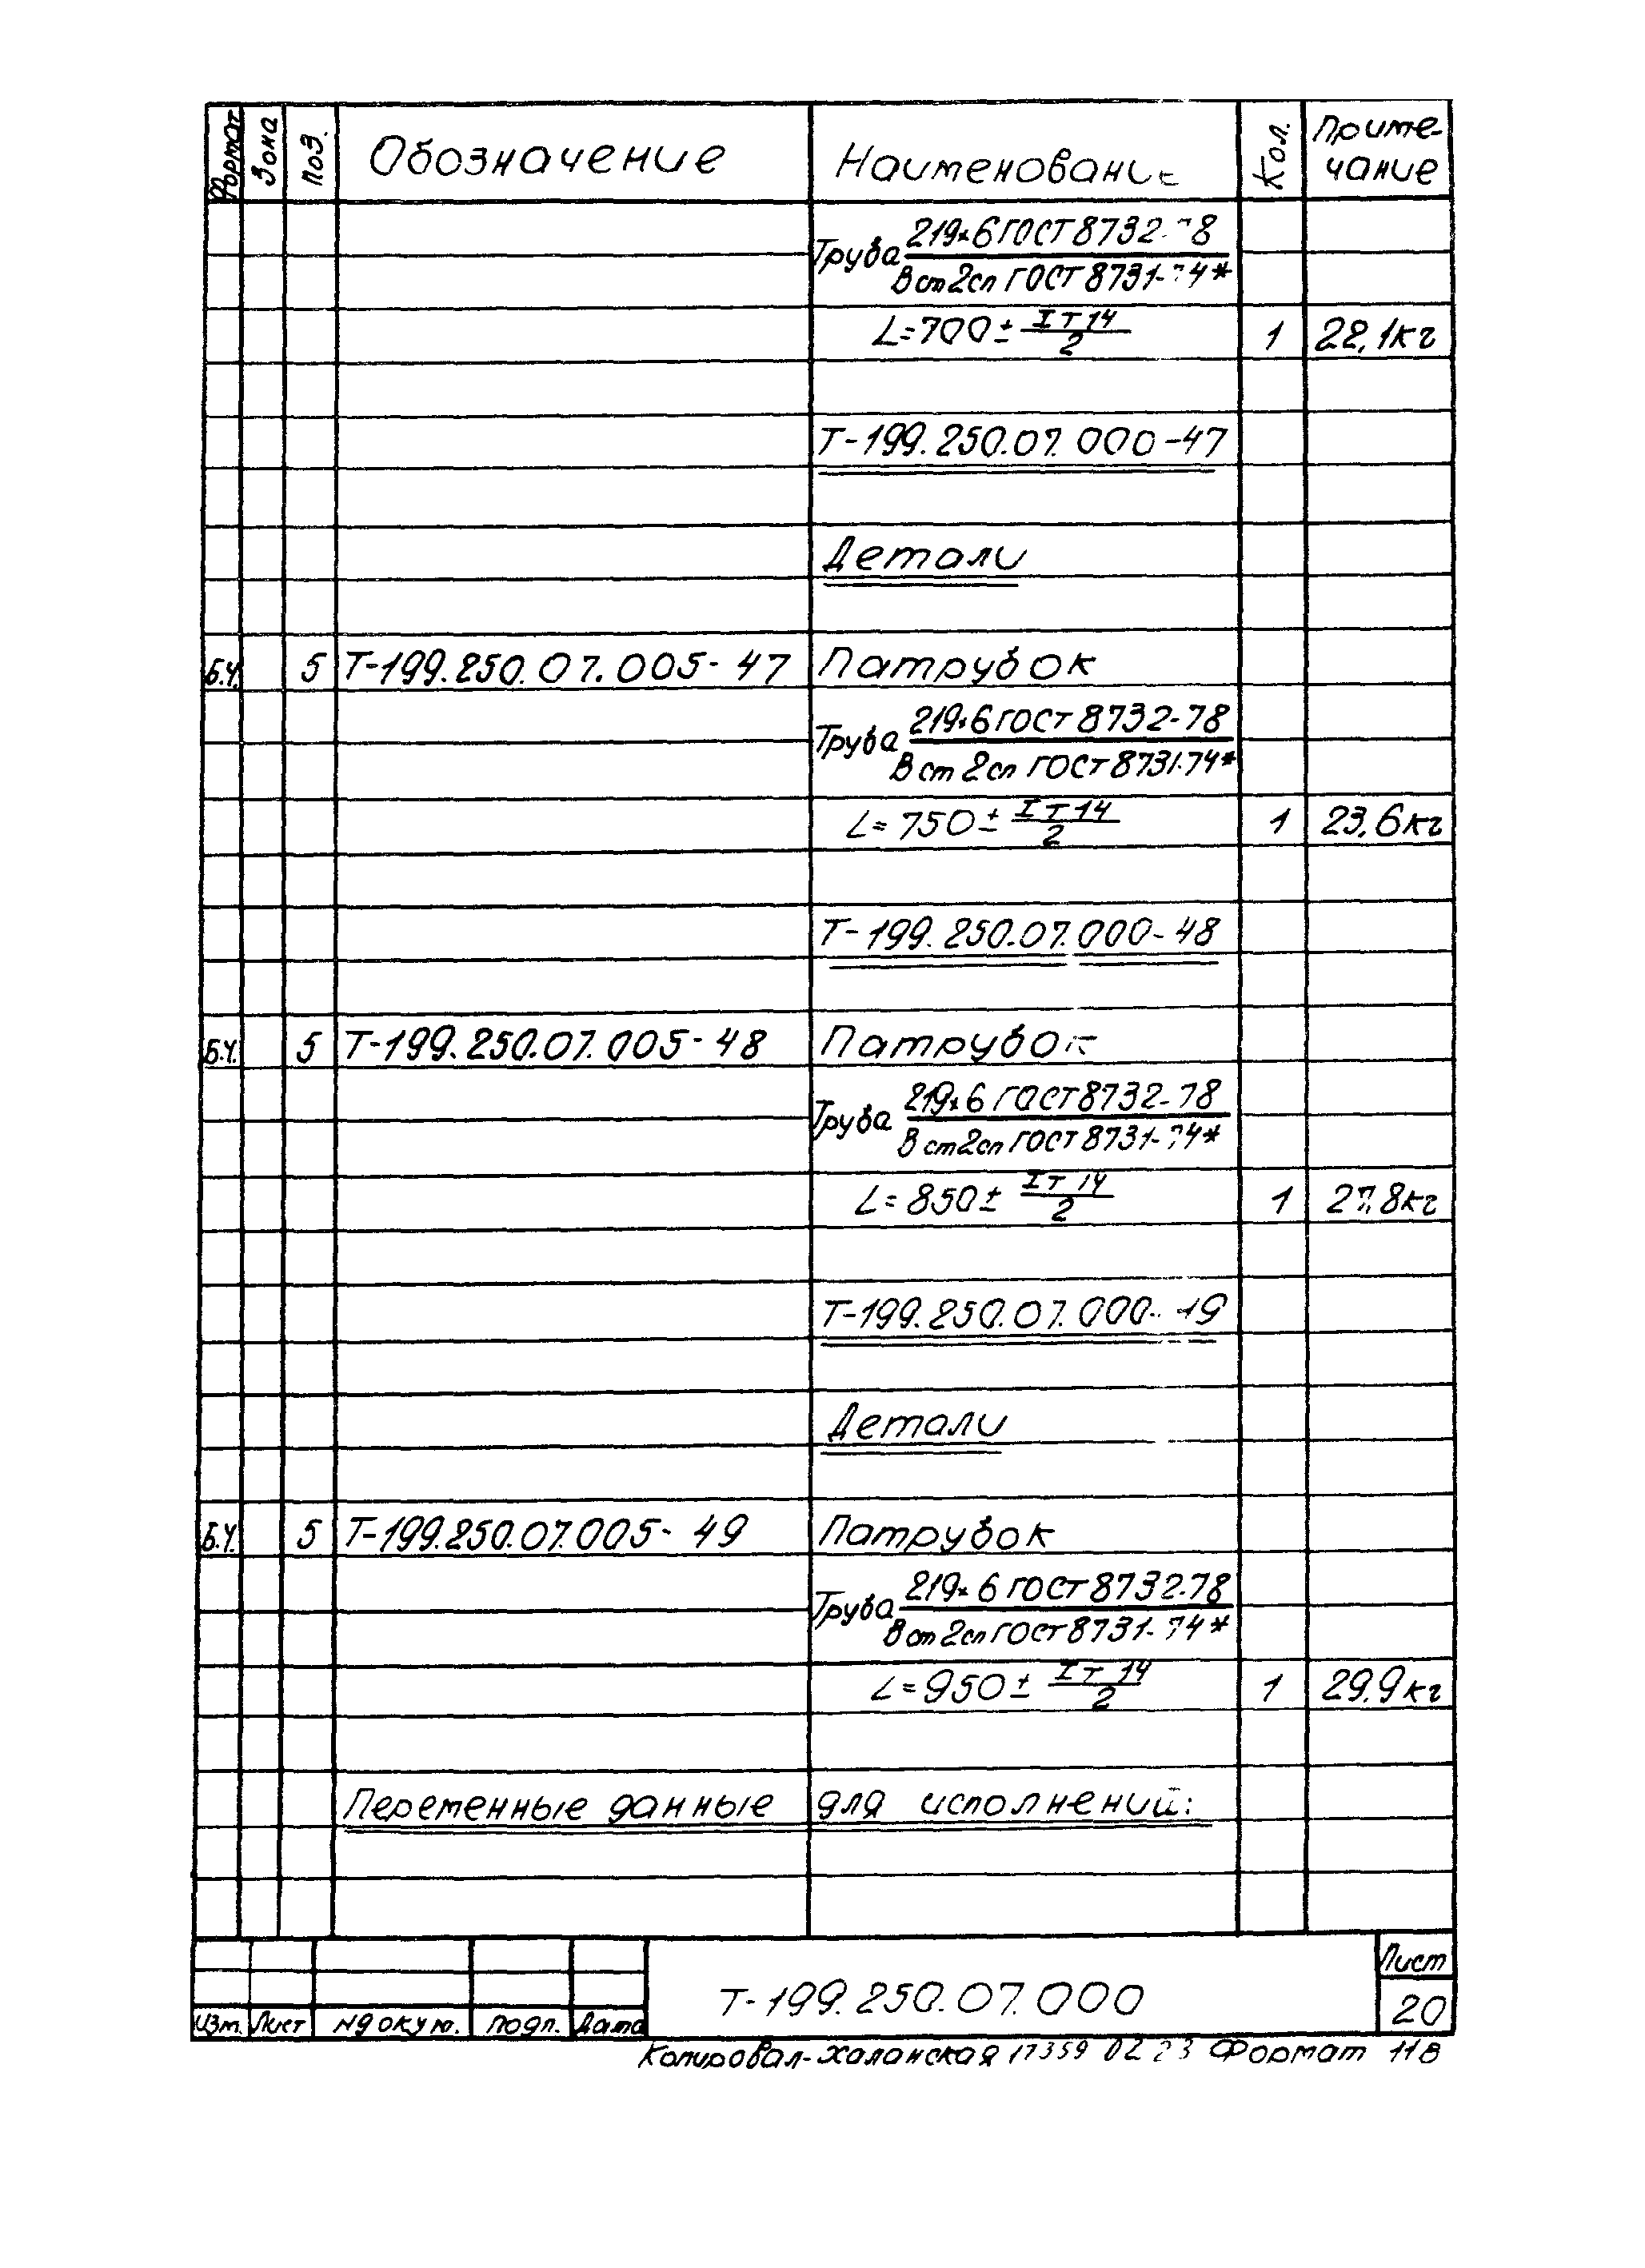 Формат Зона Поз. Обозначение Наименование Кол. Приме-
чание
Труба 219×6 ГОСТ 8732-78
В ст 2сп ГОСТ 8731-74*
L=700± IТ14/2 1 22,1кг
Т-199.250.07.000-47
Детали
Б.Ч. 5 Т-199.250.07.005-47 Патрубок
Труба 219×6 ГОСТ 8732-78
В ст 2сп ГОСТ 8731-74*
L=750± IТ14/2 1 23,6кг
Т-199.250.07.000-48
Б.Ч. 5 Т-199.250.07.005-48 Патрубок
Труба 219×6 ГОСТ 8732-78
В ст 2сп ГОСТ 8731-74*
L=850± IТ14/2 1 27,8кг
Т-199.250.07.000-49
Детали
Б.Ч. 5 Т-199.250.07.005-49 Патрубок
Труба 219×6 ГОСТ 8732-78
В ст 2сп ГОСТ 8731-74*
L=950± IТ14/2 1 29,9кг
Переменные данные для исполнений:
Лист
Т-199.250.07.000 20
Изм. Лист №докум. Подп. Дата
Копировал-Халанская 17359 02 23 Формат 11В